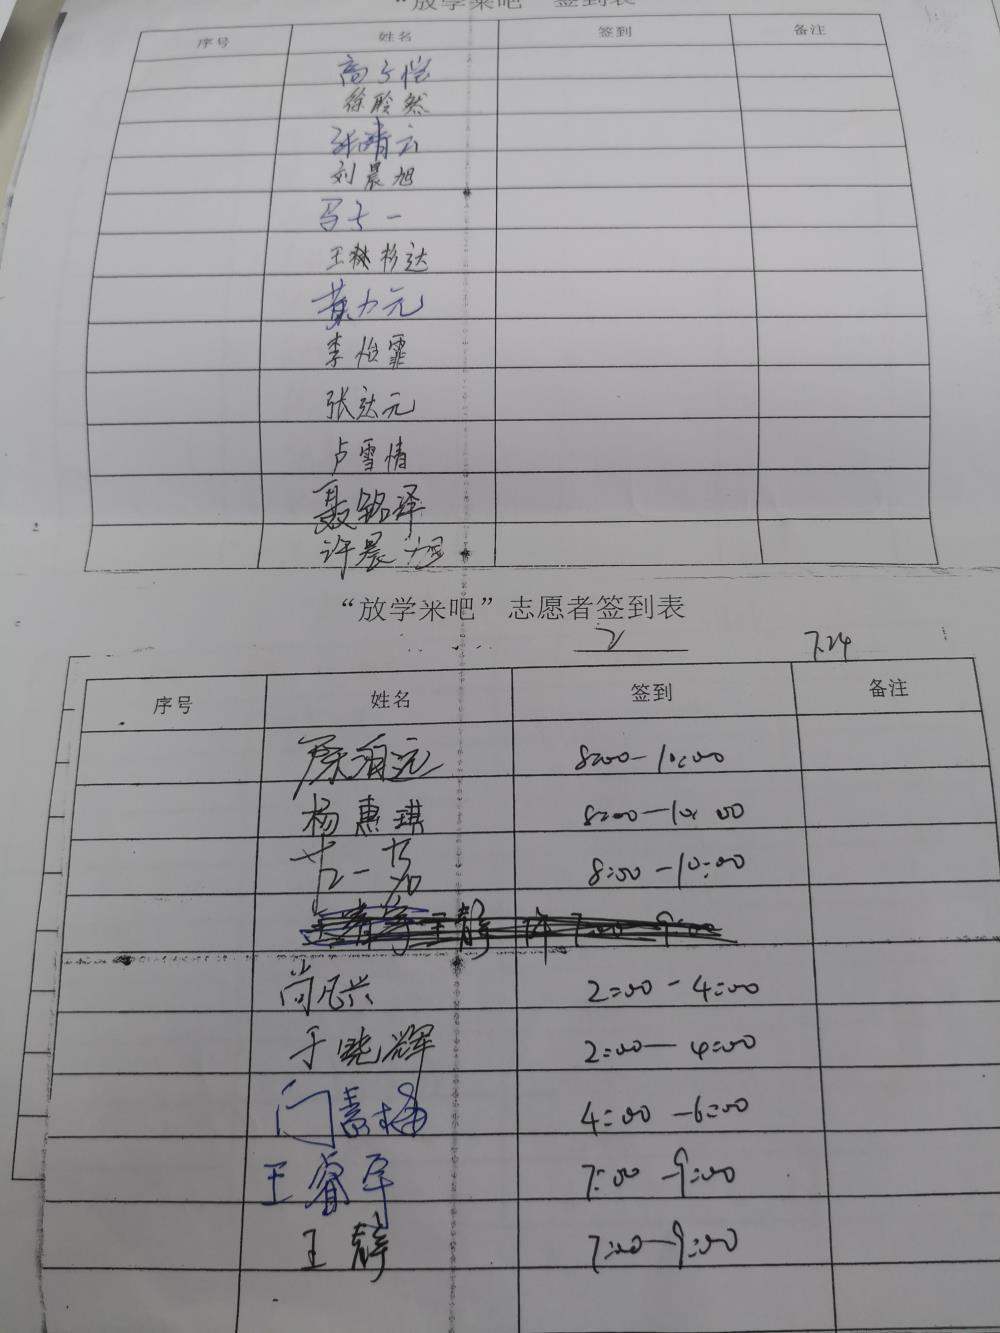 “放学来吧” 签到表
序号 姓名 签到 备注
高子恺
徐聆然
张晴云
刘晨旭
马子一
王林杉达
黄力元
李怡霏
张达元
卢雪情
聂铭泽
许晨
“放学来吧”志愿者签到表
2 7.24
序号 姓名 签到 备注
8:00-10:00
杨惠琪 8:00-10:00
8:00-10:00
尚凡兴 2:00-4:00
于晓辉 2:00-4:00
门 4:00-6:00
王睿军 7:00-9:00
王静 7:00-9:00